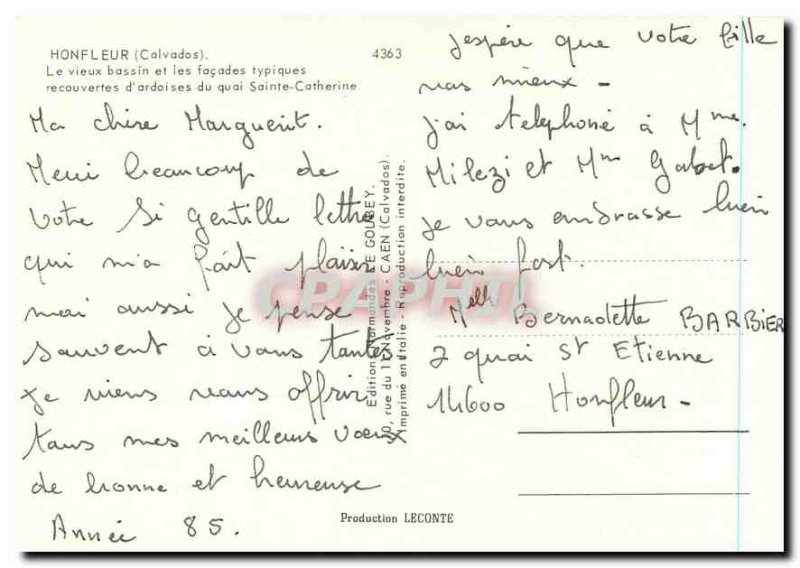 HONFLEUR (Calvados).
Le vieux bassin et les façades typiques
recouvertes d'ardoises du quai Sainte-Catherine
4363
Ma chère Marguerit.
Merci beaucoup de
votre si gentille lettre
qui m'a fait plaisir
moi aussi je pense
souvent à vous toutes
je viens vous offrir
tous mes meilleurs voeux
de bonne et heureuse
Année 85.
Editions Normandes LE GOUBEY.
rue du 11 Novembre - CAEN (Calvados).
Imprimé en Italie - Reproduction interdite.
CPAPHIL
j'espère que votre fille
vas mieux -
j'ai telephoné à Mme.
Milezi et Mm Gabet.
je vous embrasse bien
bien fort.
Melle Bernadette BARBIER
2 quai St Etienne
14600 Honfleur -
Production LECONTE